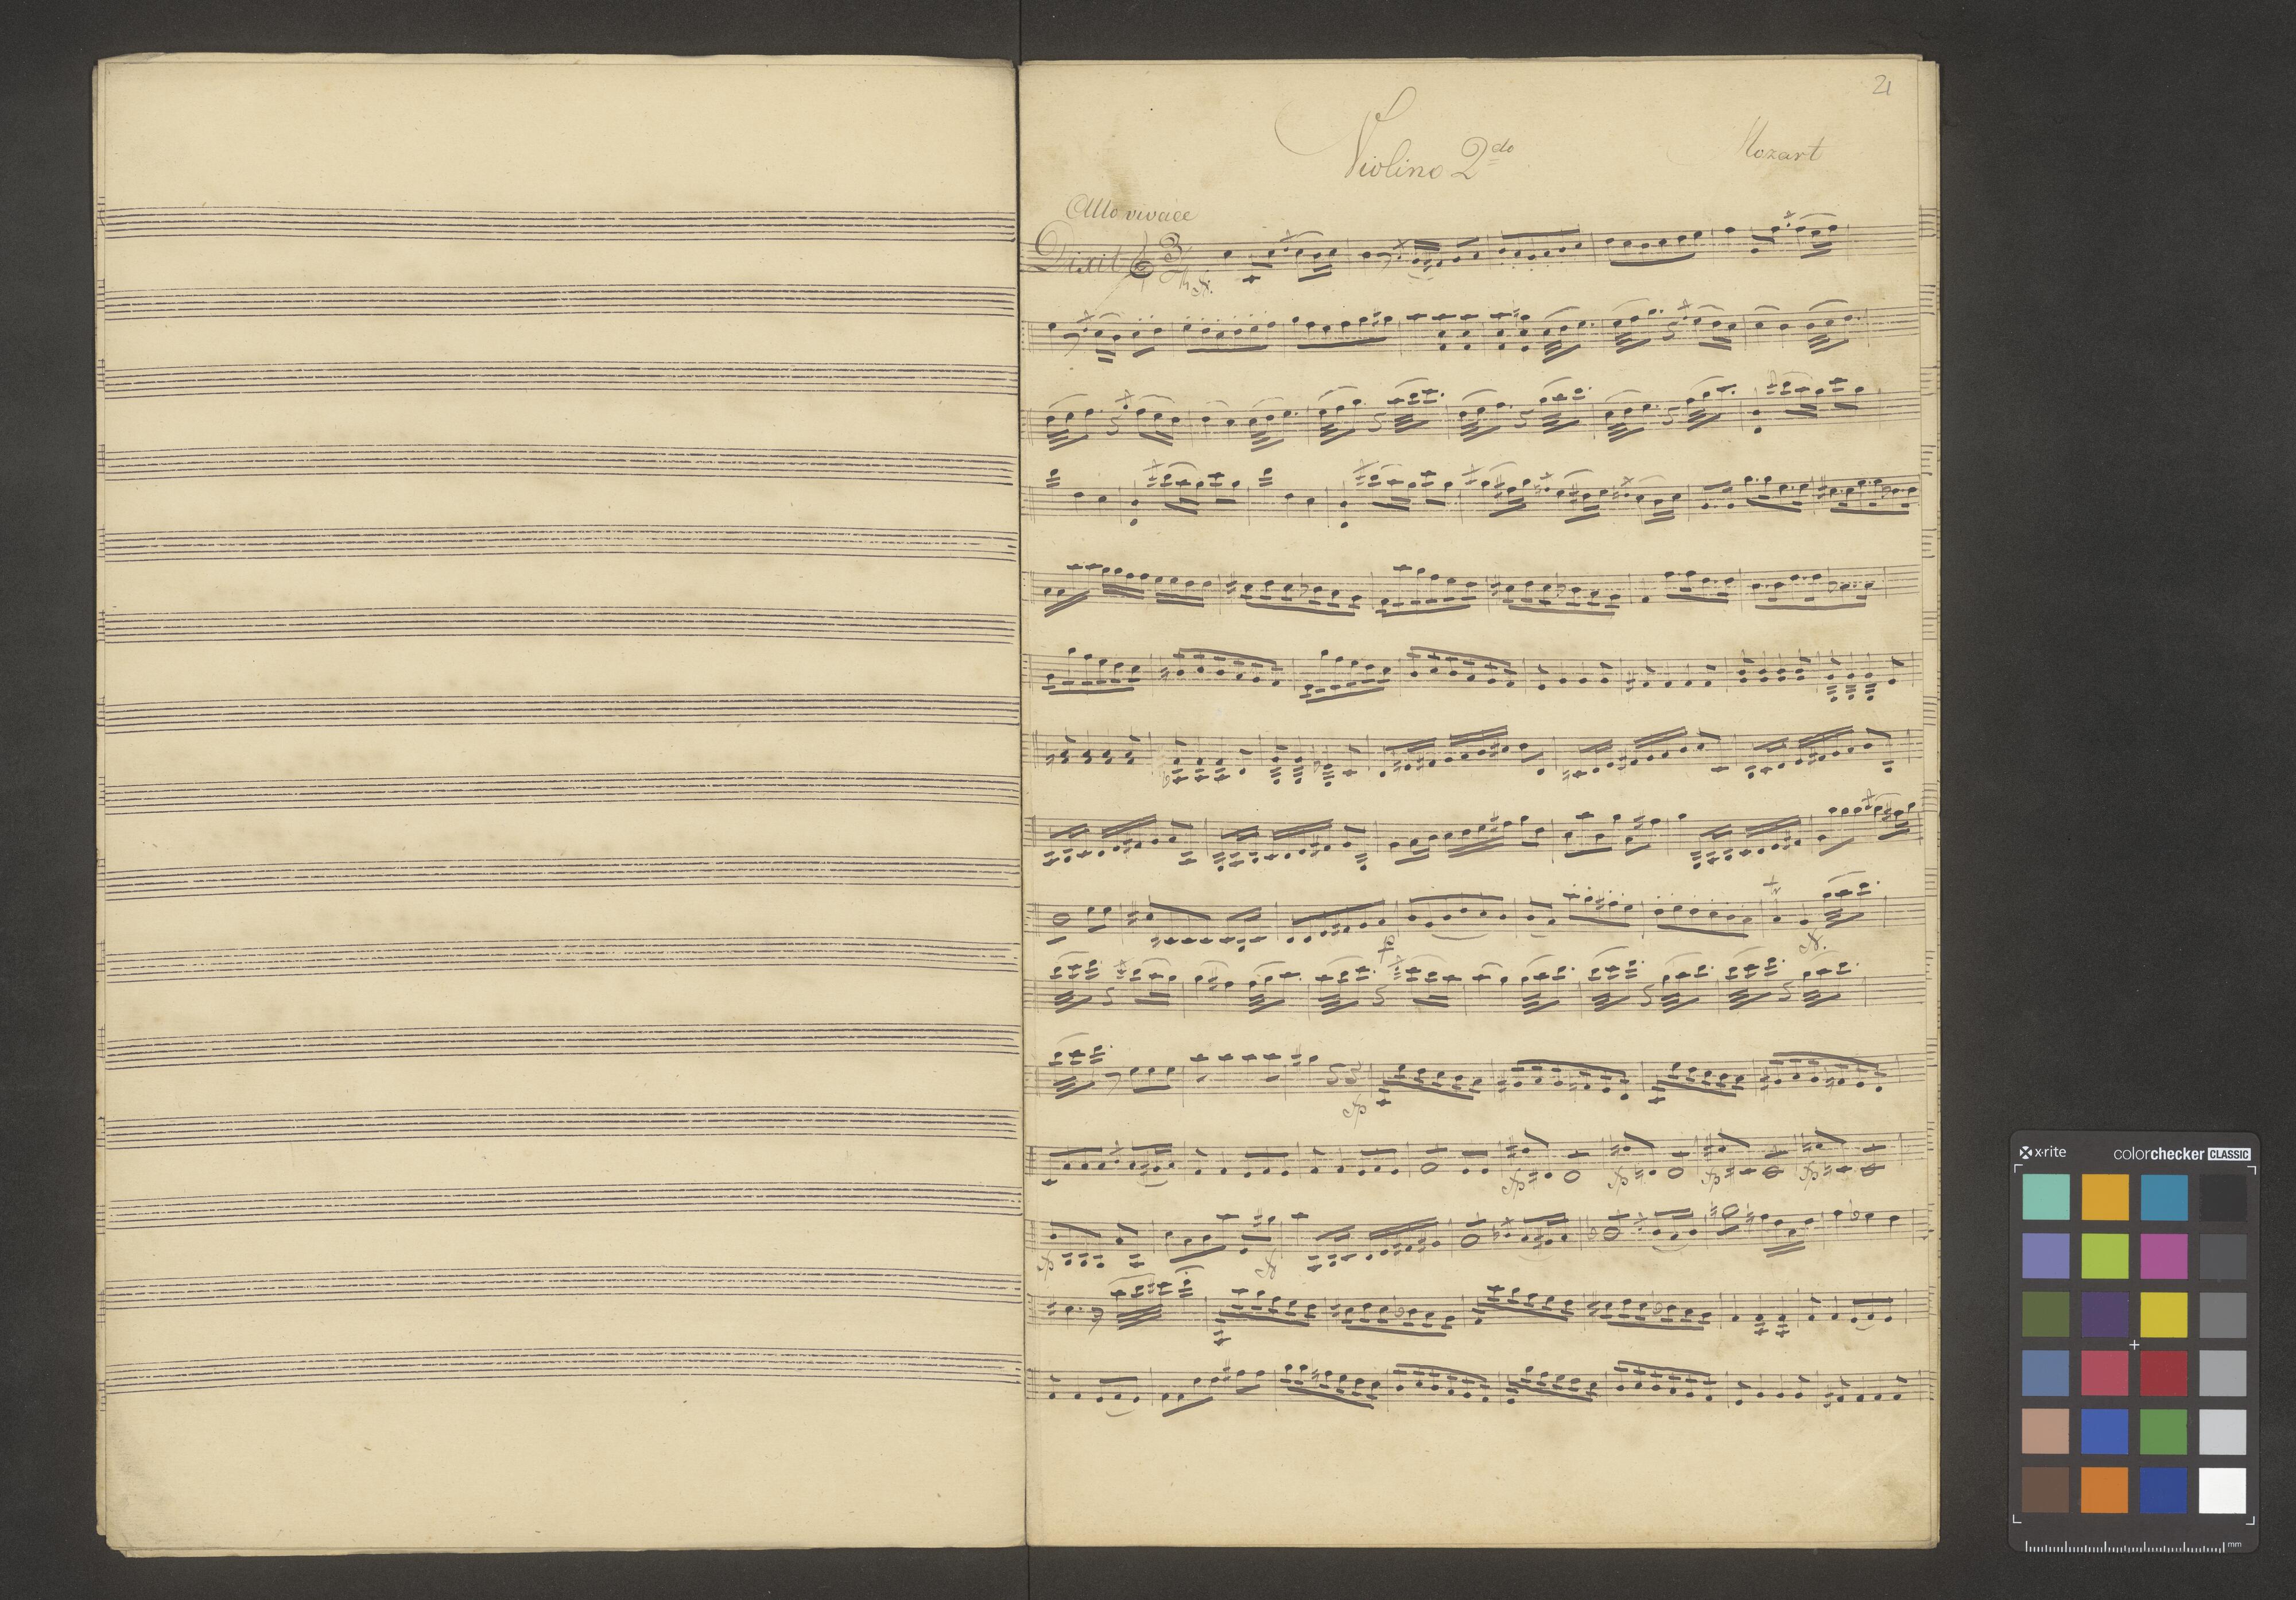 21
Violino 2do
Mozart
Allo vivace
Dixit
p
x-rite
colorchecker CLASSIC
mm